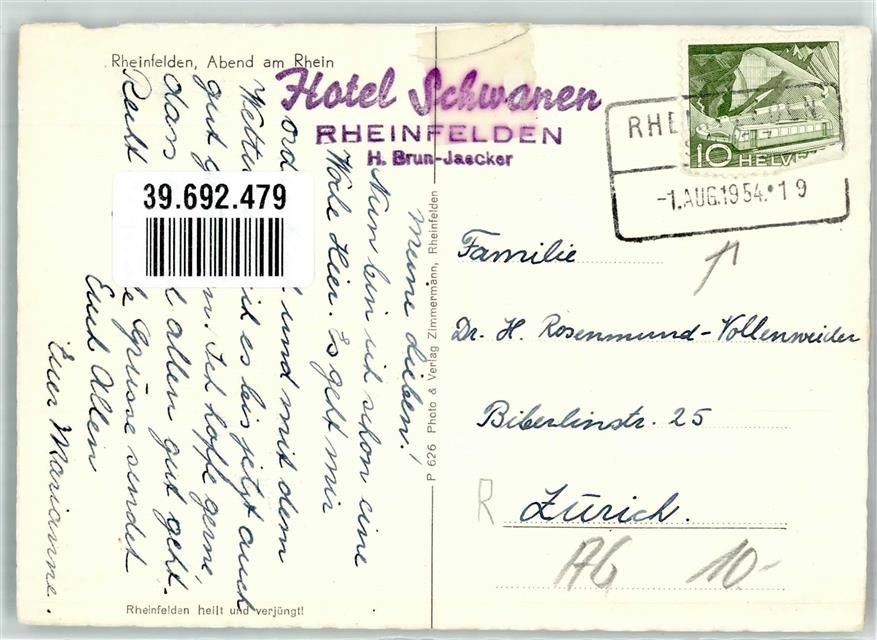 Rheinfelden, Abend am Rhein
Hotel Schwanen
RHEINFELDEN
H. Brun-Jaecker
10 HELVE
RHEINFELDEN
-1.AUG.1954.*19
39.692.479
Meine Lieben!
Nun bin ich schon eine
Woche hier. Es geht mir
und mit dem
es bis jetzt auch
gut Ich hoffe gerne,
dass allen gut geht.
Recht Grüsse sendet
Euch Allen
Eure Marianne.
P 626 Photo & Verlag Zimmermann, Rheinfelden
Familie
Dr. H. Rosenmund-Vollenweider
Biberlinstr. 25
Zürich.
R
AG 10-
Rheinfelden heilt und verjüngt!